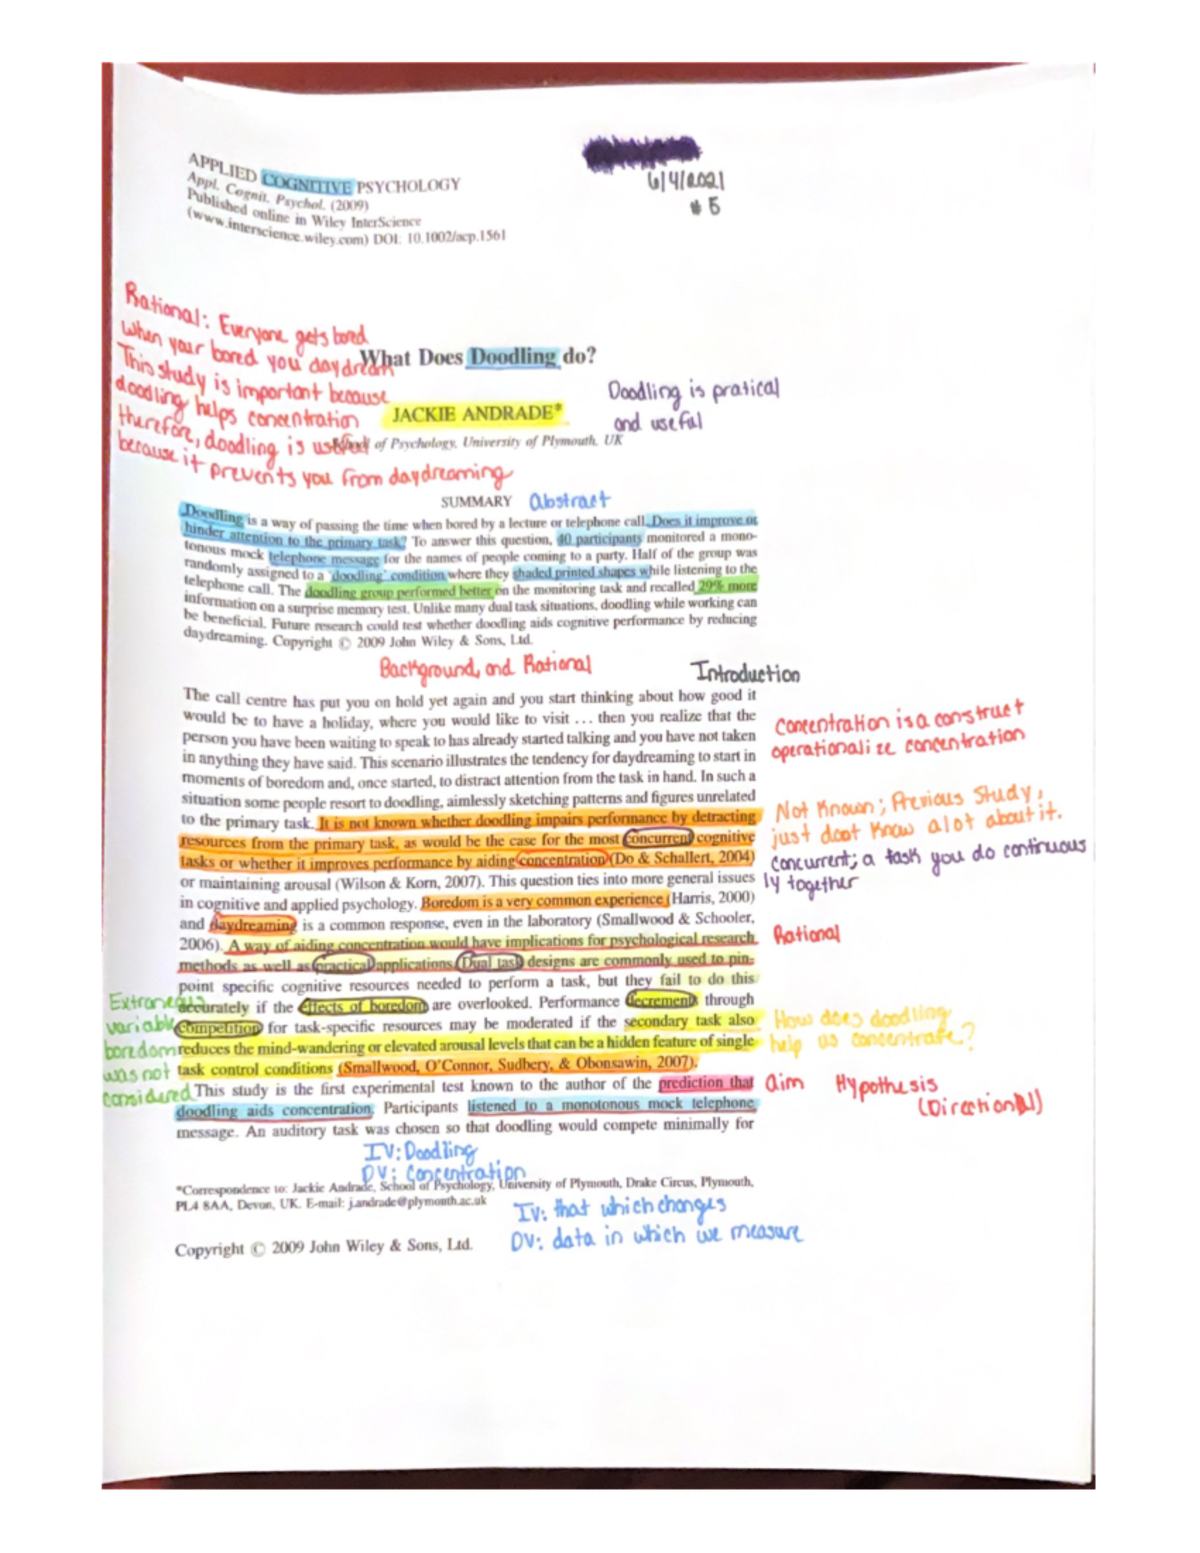 6/4/2021
# 5
APPLIED COGNITIVE PSYCHOLOGY
Appl. Cognit. Psychol. (2009)
Published online in Wiley InterScience
(www.interscience.wiley.com) DOI: 10.1002/acp.1561
Rational: Everyone gets bored
when your bored you daydream
This study is important because
doodling helps concentration
therefore, doodling is useful
because it prevents you from daydreaming
What Does Doodling do?
JACKIE ANDRADE*
of Psychology, University of Plymouth, UK
Doodling is pratical
and useful
SUMMARY Abstract
Doodling is a way of passing the time when bored by a lecture or telephone call. Does it improve or
hinder attention to the primary task? To answer this question, 40 participants monitored a mono-
tonous mock telephone message for the names of people coming to a party. Half of the group was
randomly assigned to a 'doodling' condition where they shaded printed shapes while listening to the
telephone call. The doodling group performed better on the monitoring task and recalled 29% more
information on a surprise memory test. Unlike many dual task situations, doodling while working can
be beneficial. Future research could test whether doodling aids cognitive performance by reducing
daydreaming. Copyright © 2009 John Wiley & Sons, Ltd.
Background, and Rational
Introduction
The call centre has put you on hold yet again and you start thinking about how good it
would be to have a holiday, where you would like to visit … then you realize that the
person you have been waiting to speak to has already started talking and you have not taken
in anything they have said. This scenario illustrates the tendency for daydreaming to start in
moments of boredom and, once started, to distract attention from the task in hand. In such a
situation some people resort to doodling, aimlessly sketching patterns and figures unrelated
to the primary task. It is not known whether doodling impairs performance by detracting
resources from the primary task, as would be the case for the most concurrent cognitive
tasks or whether it improves performance by aiding concentration (Do & Schallert, 2004)
or maintaining arousal (Wilson & Korn, 2007). This question ties into more general issues
in cognitive and applied psychology. Boredom is a very common experience (Harris, 2000)
and daydreaming is a common response, even in the laboratory (Smallwood & Schooler,
2006). A way of aiding concentration would have implications for psychological research
methods as well as practical applications. Dual task designs are commonly used to pin-
point specific cognitive resources needed to perform a task, but they fail to do this
accurately if the effects of boredom are overlooked. Performance decrement through
competition for task-specific resources may be moderated if the secondary task also
reduces the mind-wandering or elevated arousal levels that can be a hidden feature of single
task control conditions (Smallwood, O'Connor, Sudbery, & Obonsawin, 2007).
This study is the first experimental test known to the author of the prediction that
doodling aids concentration. Participants listened to a monotonous mock telephone
message. An auditory task was chosen so that doodling would compete minimally for
Concentration is a construct
operationalize concentration
Not Known; Previous Study,
just doot know alot about it.
concurrent; a task you do continuous
ly together
Rational
Extraneous
variable
boredom
was not
considered
How does doodling
help us concentrate?
aim Hypothesis
(Directional)
IV: Doodling
DV: Concentration
*Correspondence to: Jackie Andrade, School of Psychology, University of Plymouth, Drake Circus, Plymouth,
PL4 8AA, Devon, UK. E-mail: j.andrade@plymouth.ac.uk
IV: that which changes
DV: data in which we measure
Copyright © 2009 John Wiley & Sons, Ltd.